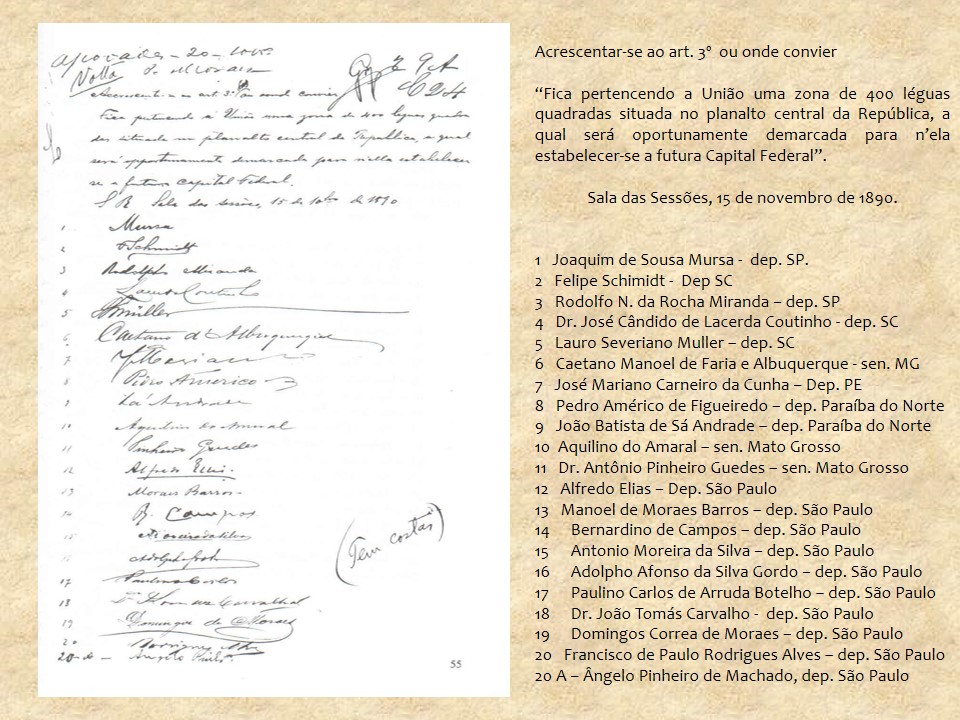 Approvados - 20-
Volta P. Moraes
Accrescente-se ao art. 3º ou onde convier
Fica pertencendo á União uma zona de 400 leguas quadra-
das situada no planalto central da Republica, a qual
será opportunamente demarcada para n'ella estabelecer-
se a futura Capital Federal.
S R Sala das sessões, 15 de 1890
1 Mursa
2 Schmidt
3 Rodolpho Miranda
4 Lacerda Coutinho
5 Müller
6 Caetano de Albuquerque
7 J. Mariano
8 Pedro Americo
9 Sá Andrade
10 Aquilino do Amaral
11 Pinheiro Guedes
12 Alfredo Ellis.
13 Moraes Barros-
14 B. Campos
15 Moreira da Silva
16 Adolpho Gordo
17 Paulino Carlos
18 Carvalhal
19 Domingos de Moraes
20 Rodrigues Alves
20-A - Angelo Pinheiro
(Tem costas)
55
Acrescentar-se ao art. 3º ou onde convier
“Fica pertencendo a União uma zona de 400 léguas
quadradas situada no planalto central da República, a
qual será oportunamente demarcada para n’ela
estabelecer-se a futura Capital Federal”.
Sala das Sessões, 15 de novembro de 1890.
1 Joaquim de Sousa Mursa - dep. SP.
2 Felipe Schimidt - Dep SC
3 Rodolfo N. da Rocha Miranda – dep. SP
4 Dr. José Cândido de Lacerda Coutinho - dep. SC
5 Lauro Severiano Muller – dep. SC
6 Caetano Manoel de Faria e Albuquerque - sen. MG
7 José Mariano Carneiro da Cunha – Dep. PE
8 Pedro Américo de Figueiredo – dep. Paraíba do Norte
9 João Batista de Sá Andrade – dep. Paraíba do Norte
10 Aquilino do Amaral – sen. Mato Grosso
11 Dr. Antônio Pinheiro Guedes – sen. Mato Grosso
12 Alfredo Elias – Dep. São Paulo
13 Manoel de Moraes Barros – dep. São Paulo
14 Bernardino de Campos – dep. São Paulo
15 Antonio Moreira da Silva – dep. São Paulo
16 Adolpho Afonso da Silva Gordo – dep. São Paulo
17 Paulino Carlos de Arruda Botelho – dep. São Paulo
18 Dr. João Tomás Carvalho - dep. São Paulo
19 Domingos Correa de Moraes – dep. São Paulo
20 Francisco de Paulo Rodrigues Alves – dep. São Paulo
20 A – Ângelo Pinheiro de Machado, dep. São Paulo